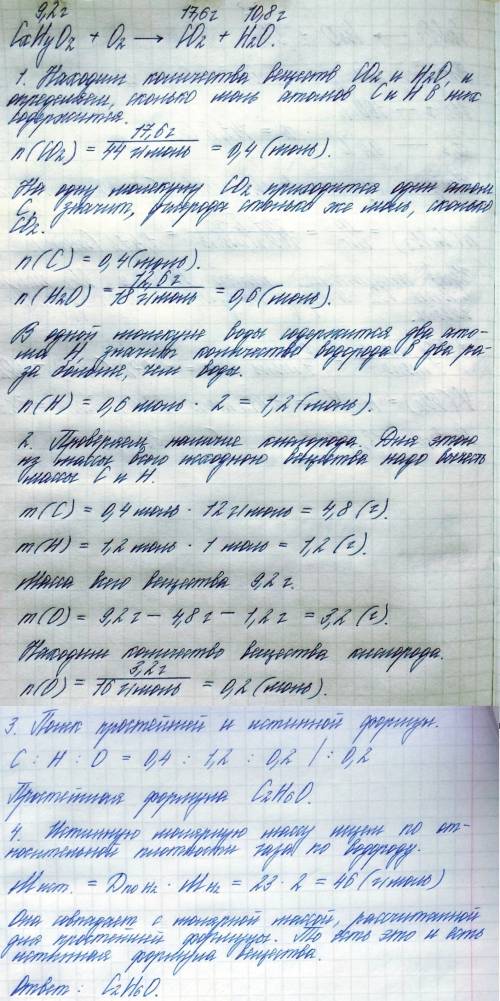 9,2г 17,6г 10,8г
CxHyOz + O2 → CO2 + H2O.
1. Находим количества веществ CO2 и H2O, и
определяем, сколько моль атомов C и H в них
содержится.
n(CO2) = 17,6г / 44 г/моль = 0,4 (моль).
На одну молекулу CO2 приходится один атом
C, значит, углерода столько же моль, сколько
CO2.
n(C) = 0,4 (моль).
n(H2O) = г / 18 г/моль = 0,6 (моль).
В одной молекуле воды содержится два ато-
ма H, значит количество водорода в два ра-
за больше, чем воды.
n(H) = 0,6 моль · 2 = 1,2 (моль).
2. Проверяем наличие кислорода. Для этого
из массы всего исходного вещества надо вычесть
массы C и H.
m(C) = 0,4 моль · 12 г/моль = 4,8 (г).
m(H) = 1,2 моль · 1 моль = 1,2 (г).
Масса всего вещества 9,2 г.
m(O) = 9,2г – 4,8г – 1,2г = 3,2 (г).
Находим количество вещества кислорода.
n(O) = 3,2г / 16 г/моль = 0,2 (моль).
3. Поиск простейшей и истинной формул.
C : H : O = 0,4 : 1,2 : 0,2 | : 0,2
Простейшая формула C2H6O.
4. Истинную молярную массу ищем по от-
носительной плотности газа по водороду.
Mист. = Dпо H2 · MH2 = 23 · 2 = 46 (г/моль)
Она совпадает с молярной массой, рассчитанной
для простейшей формулы. То есть это и есть
истинная формула вещества.
Ответ: C2H6O.